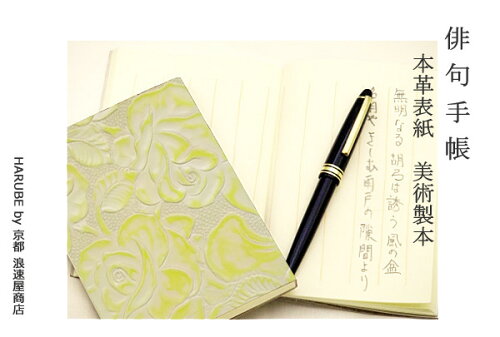 俳句手帳
本革表紙　美術製本
無明なる 胡弓は誘う 風の盆
や きしむ雨戸の 隙間より
HARUBE by 京都 浪速屋商店